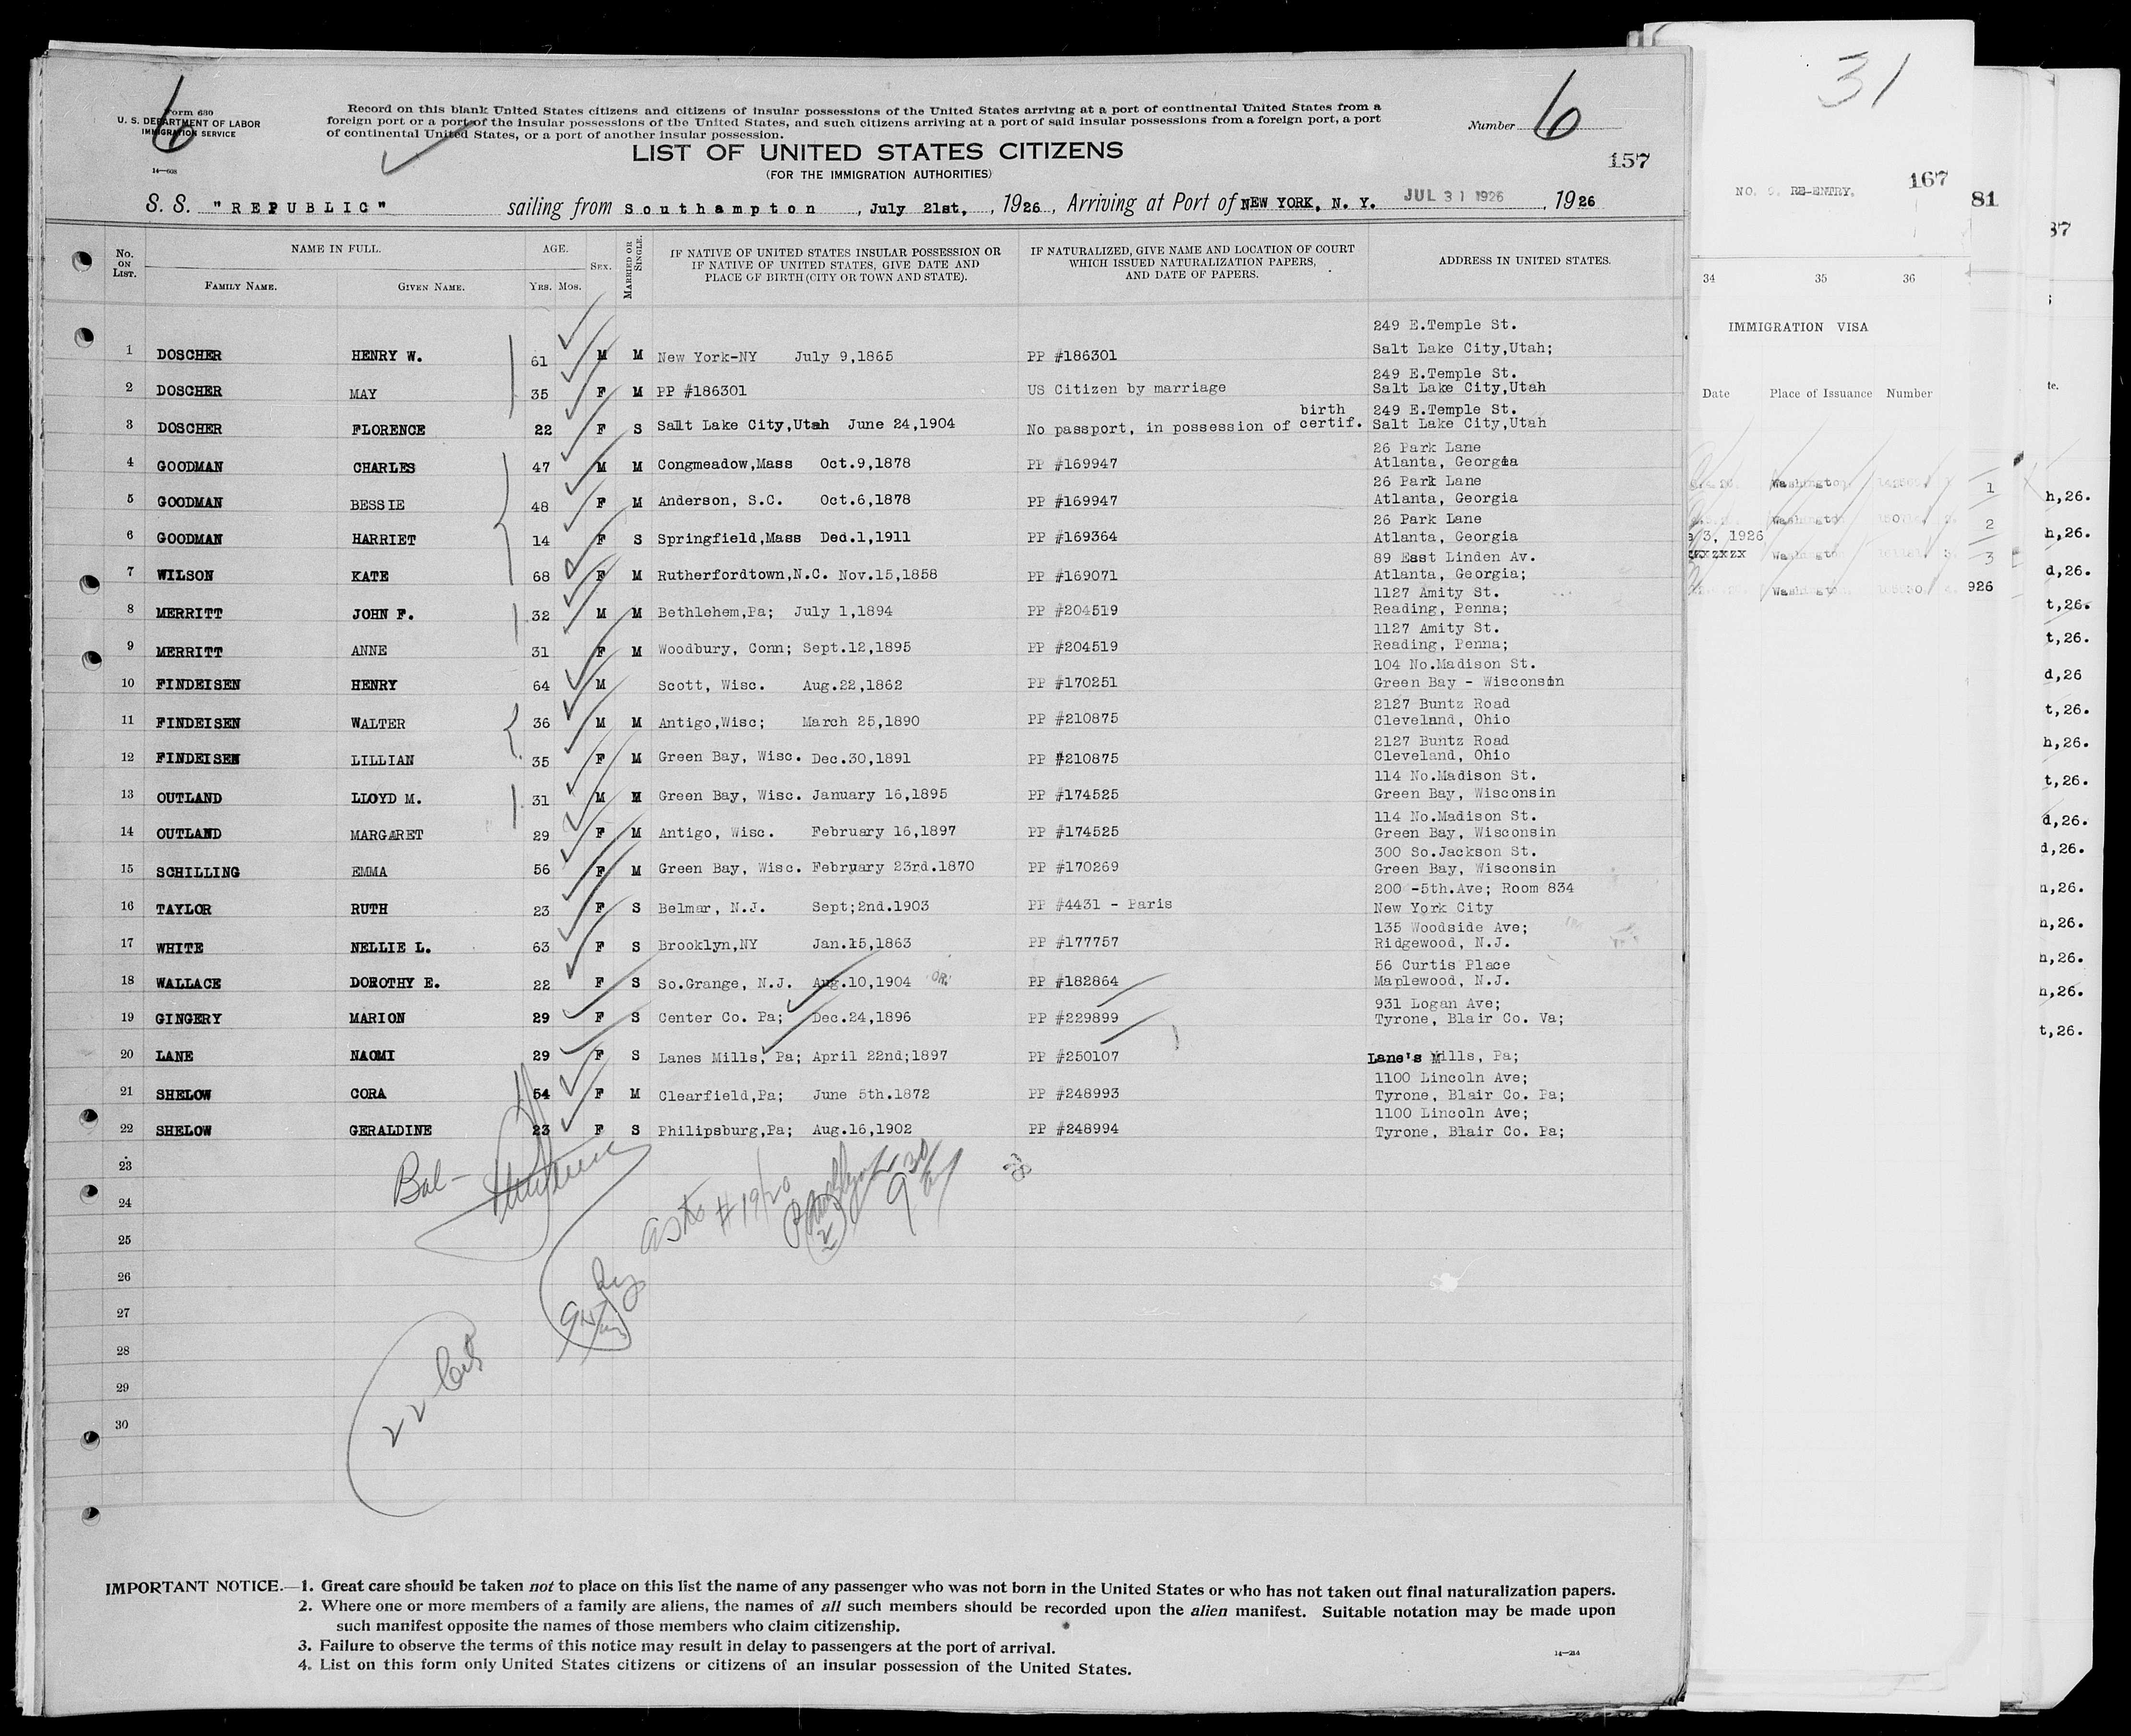 6
Form 630
U. S. DEPARTMENT OF LABOR
IMMIGRATION SERVICE
14—608
Record on this blank United States citizens and citizens of insular possessions of the United States arriving at a port of continental United States from a
foreign port or a port of the insular possessions of the United States, and such citizens arriving at a port of said insular possessions from a foreign port, a port
of continental United States, or a port of another insular possession.
Number 6
LIST OF UNITED STATES CITIZENS
(FOR THE IMMIGRATION AUTHORITIES)
157
S. S. "REPUBLIC" sailing from Southampton, July 21st, 1926, Arriving at Port of NEW YORK, N. Y. JUL 31 1926, 1926
No. ON LIST. NAME IN FULL. FAMILY NAME. GIVEN NAME. AGE. YRS. MOS. SEX. MARRIED OR SINGLE. IF NATIVE OF UNITED STATES INSULAR POSSESSION OR IF NATIVE OF UNITED STATES, GIVE DATE AND PLACE OF BIRTH (CITY OR TOWN AND STATE). IF NATURALIZED, GIVE NAME AND LOCATION OF COURT WHICH ISSUED NATURALIZATION PAPERS, AND DATE OF PAPERS. ADDRESS IN UNITED STATES.
249 E.Temple St.
1 DOSCHER HENRY W. 61 M M New York-NY July 9,1865 PP #186301 Salt Lake City,Utah;
249 E.Temple St.
2 DOSCHER MAY 35 F M PP #186301 US Citizen by marriage Salt Lake City,Utah
birth 249 E.Temple St.
3 DOSCHER FLORENCE 22 F S Salt Lake City,Utah June 24,1904 No passport, in possession of certif. Salt Lake City,Utah
26 Park Lane
4 GOODMAN CHARLES 47 M M Congmeadow,Mass Oct.9,1878 PP #169947 Atlanta, Georgia
26 Park Lane
5 GOODMAN BESSIE 48 F M Anderson, S.C. Oct.6,1878 PP #169947 Atlanta, Georgia
26 Park Lane
6 GOODMAN HARRIET 14 F S Springfield,Mass Dec.1,1911 PP #169364 Atlanta, Georgia
89 East Linden Av.
7 WILSON KATE 68 F M Rutherfordtown,N.C. Nov.15,1858 PP #169071 Atlanta, Georgia;
1127 Amity St.
8 MERRITT JOHN F. 32 M M Bethlehem,Pa; July 1,1894 PP #204519 Reading, Penna;
1127 Amity St.
9 MERRITT ANNE 31 F M Woodbury, Conn; Sept.12,1895 PP #204519 Reading, Penna;
104 No.Madison St.
10 FINDEISEN HENRY 64 M Scott, Wisc. Aug.22,1862 PP #170251 Green Bay - Wisconsin
2127 Buntz Road
11 FINDEISEN WALTER 36 M M Antigo,Wisc; March 25,1890 PP #210875 Cleveland, Ohio
2127 Buntz Road
12 FINDEISEN LILLIAN 35 F M Green Bay, Wisc. Dec.30,1891 PP #210875 Cleveland, Ohio
114 No.Madison St.
13 OUTLAND LLOYD M. 31 M M Green Bay, Wisc. January 16,1895 PP #174525 Green Bay, Wisconsin
114 No.Madison St.
14 OUTLAND MARGARET 29 F M Antigo, Wisc. February 16,1897 PP #174525 Green Bay, Wisconsin
300 So.Jackson St.
15 SCHILLING EMMA 56 F M Green Bay, Wisc. February 23rd.1870 PP #170269 Green Bay, Wisconsin
200 -5th.Ave; Room 834
16 TAYLOR RUTH 23 F S Belmar, N.J. Sept;2nd.1903 PP #4431 - Paris New York City
135 Woodside Ave;
17 WHITE NELLIE L. 63 F S Brooklyn,NY Jan.15,1863 PP #177757 Ridgewood, N.J.
56 Curtis Place
18 WALLACE DOROTHY E. 22 F S So.Grange, N.J. Aug.10,1904 OR. PP #182864 Maplewood, N.J.
931 Logan Ave;
19 GINGERY MARION 29 F S Center Co. Pa; Dec.24,1896 PP #229899 Tyrone, Blair Co. Va;
20 LANE NAOMI 29 F S Lanes Mills, Pa; April 22nd;1897 PP #250107 Lane's Mills, Pa;
1100 Lincoln Ave;
21 SHELOW CORA 54 F M Clearfield,Pa; June 5th.1872 PP #248993 Tyrone, Blair Co. Pa;
1100 Lincoln Ave;
22 SHELOW GERALDINE 23 F S Philipsburg,Pa; Aug.16,1902 PP #248994 Tyrone, Blair Co. Pa;
23
24
25
26
27
28
29
30
Bal-
#19/20
22
IMPORTANT NOTICE.—1. Great care should be taken not to place on this list the name of any passenger who was not born in the United States or who has not taken out final naturalization papers.
2. Where one or more members of a family are aliens, the names of all such members should be recorded upon the alien manifest. Suitable notation may be made upon
such manifest opposite the names of those members who claim citizenship.
3. Failure to observe the terms of this notice may result in delay to passengers at the port of arrival.
4. List on this form only United States citizens or citizens of an insular possession of the United States.
14—214
31
NO. RE-ENTRY.
167
81
37
34 35 36
IMMIGRATION VISA
Date Place of Issuance Number
te.
Washington 1
Washington 2
3, 1926
Washington 3
Washington 926
h,26.
h,26.
d,26.
t,26.
t,26.
d,26
t,26.
h,26.
t,26.
d,26.
d,26.
n,26.
h,26.
h,26.
h,26.
t,26.